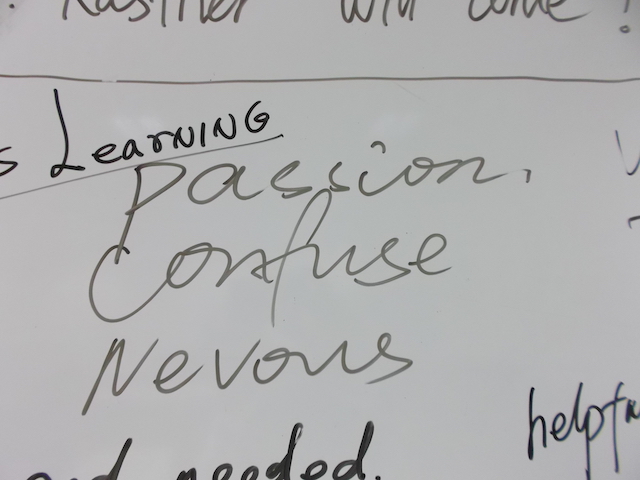 will come!
Learning
Passion.
Confuse
Nevous
helpfu
needed.